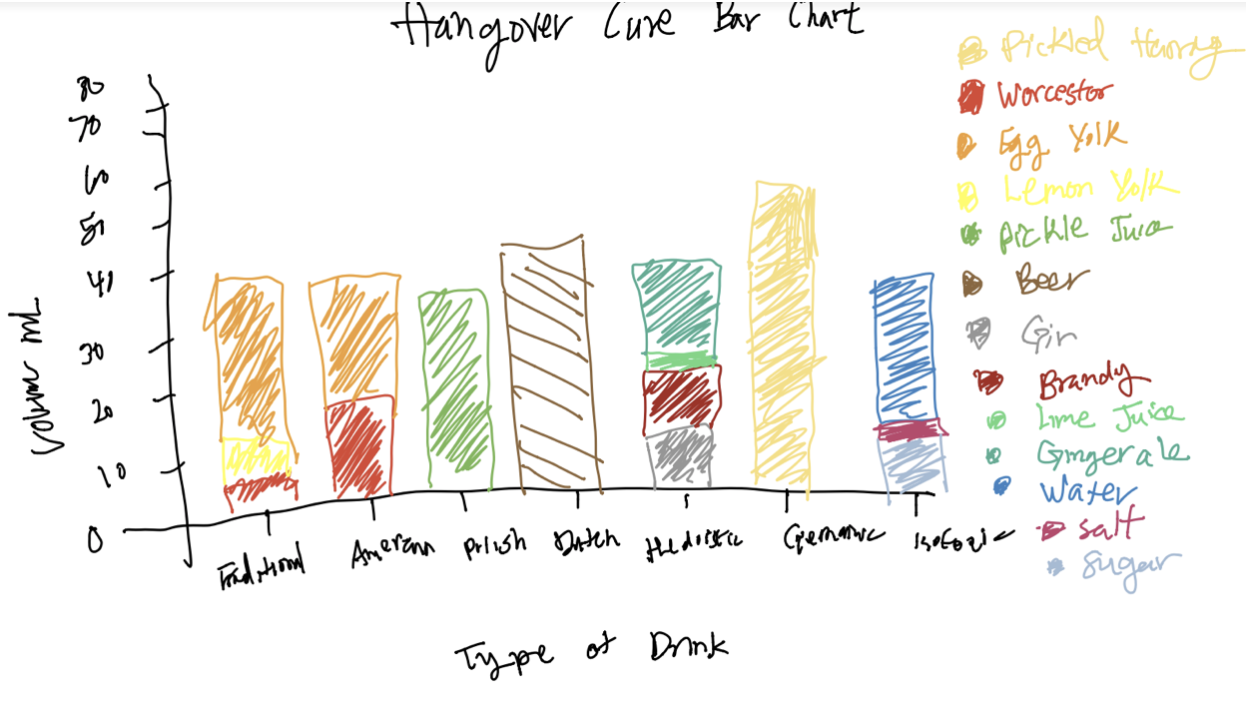 Hangover Cure Bar Chart
80
70
60
50
40
30
20
10
0
Volum mL
Traditional
American
Polish
Dutch
Hedoistic
Germanic
Type of Drink
Pickled
Worcestor
Egg Yolk
Lemon Yolk
Pickle Juice
Beer
Gin
Brandy
Lime Juice
Gingerale
Water
salt
Sugar